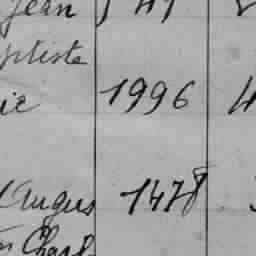 Jean
ptiste
ie 1996 4
Augus 1478
Charl